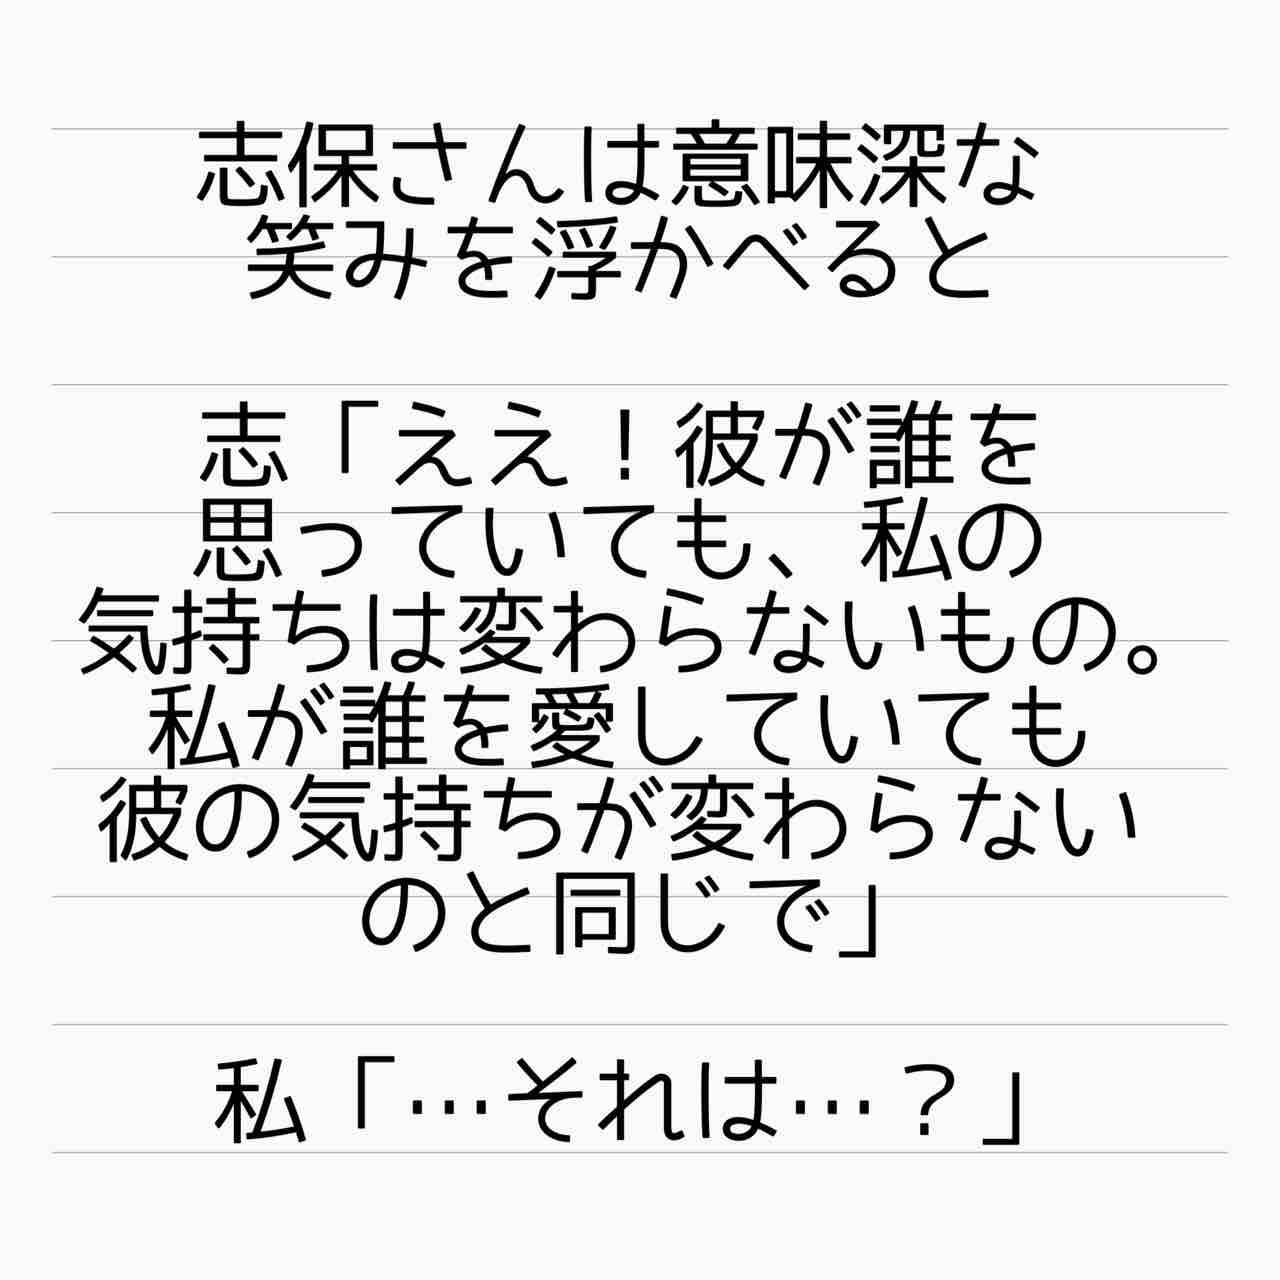 志保さんは意味深な
笑みを浮かべると
志「ええ！彼が誰を
思っていても、私の
気持ちは変わらないもの。
私が誰を愛していても
彼の気持ちが変わらない
のと同じで」
私「…それは…？」